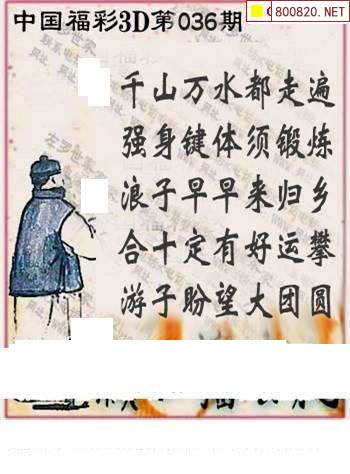 800820.NET
中国福彩3D第036期
千山万水都走遍
强身键体须锻炼
浪子早早来归乡
合十定有好运攀
游子盼望大团圆